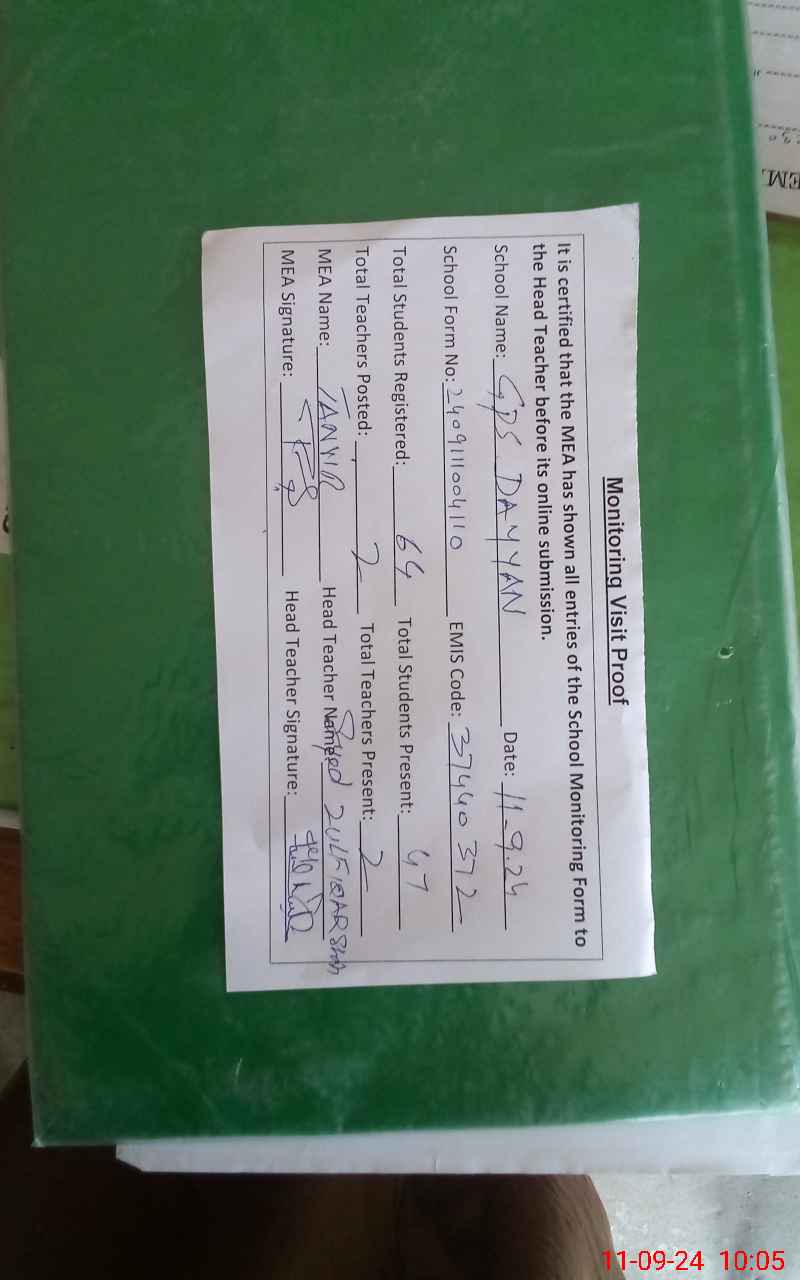 Monitoring Visit Proof
It is certified that the MEA has shown all entries of the School Monitoring Form to
the Head Teacher before its online submission.
School Name: GPS DAYYAN Date: 11-9.24
School Form No: 240911004110 EMIS Code: 37440372
Total Students Registered: 64 Total Students Present: 47
Total Teachers Posted: 2 Total Teachers Present: 2
MEA Name: TANVIR Head Teacher Name: Syed ZULFIQAR Shah
MEA Signature: Head Teacher Signature:
11-09-24 10:05